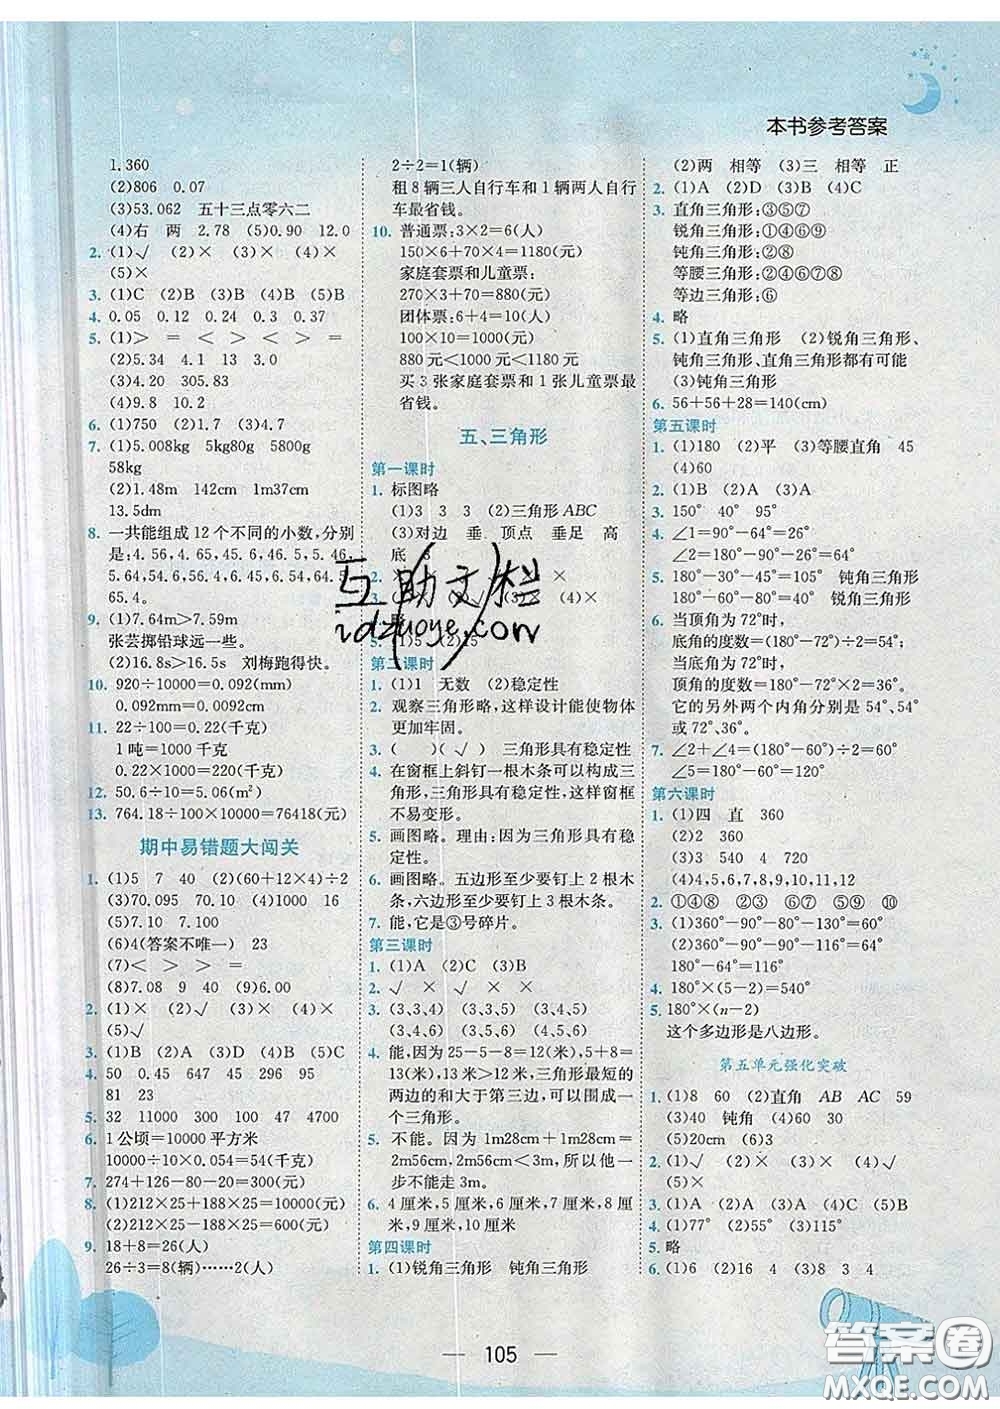 本书参考答案
1.360
(2)806 0.07
(3)53.062 五十三点零六二
(4)右 两 2.78 (5)0.90 12.0
2. (1)√ (2)× (3)× (4)×
(5)×
3. (1)C (2)B (3)B (4)B (5)B
4. 0.05 0.12 0.24 0.3 0.37
5. (1)> = < > < > =
(2)5.34 4.1 13 3.0
(3)4.20 315.85
(4)9.8 10.2
6. (1)750 (2)1.2 (3)4.7
7. (1)5.008kg 5kg80g 5800g
58kg
(2)1.48m 142cm 1m37cm
13.5dm
8. 一共能组成12个不同的小数,分别
是:4.56,4.65,45.6,46.5,5.46,
5.64,54.6,56.4,6.45,6.54,64.5,
65.4。
9. (1)7.64m>7.59m
张芸掷铅球远一些。
(2)16.8s>16.5s 刘梅跑得快。
10. 920÷10000=0.092(mm)
0.092mm=0.0092cm
11. 22÷100=0.22(千克)
1吨=1000千克
0.22×1000=220(千克)
12. 50.6÷10=5.06(m²)
13. 764.18÷100×10000=76418(元)
期中易错题大闯关
1. (1)5 7 40 (2)(60+12×4)÷2
(3)70.095 70.10 (4)1000 16
(5)7.10 7.100
(6)4(答案不唯一) 23
(7)< > > =
(8)7.08 9 40 (9)6.00
2. (1)× (2)√ (3)× (4)×
(5)√
3. (1)B (2)A (3)D (4)B (5)C
4. 50 0.45 47 296 95
81 23
5. 32 11000 300 100 47 4700
6. 1公顷=10000平方米
10000÷10×0.054=54(千克)
7. 274+126-80-20=300(元)
8. (1)212×25+188×25=10000(元)
(2)212×25-188×25=600(元)
9. 18+8=26(人)
26÷3=8(辆)……2(人)
2÷2=1(辆)
租8辆三人自行车和1辆两人自行
车最省钱。
10. 普通票:3×2=6(人)
150×6+70×4=1180(元)
家庭套票和儿童票:
270×3+70=880(元)
团体票:6+4=10(人)
100×10=1000(元)
880元<1000元<1180元
买3张家庭套票和1张儿童票最
省钱。
五、三角形
第一课时
1. 标图略
(1)3 3 3 (2)三角形ABC
(3)对边 垂 顶点 垂足 高
底 3
2. × × ×
3. (3)× (4)×
5. (1)5 (2)15
互助文档
idzuoye.com
第二课时
1. (1)1 无数 (2)稳定性
2. 观察三角形略,这样设计能使物体
更加牢固。
3. ( ) (√) 三角形具有稳定性
4. 在窗框上斜钉一根木条可以构成三
角形,三角形具有稳定性,这样窗框
不易变形。
5. 画图略。理由:因为三角形具有稳
定性。
6. 画图略。五边形至少要钉上2根木
条,六边形至少要钉上3根木条。
7. 能,它是③号碎片。
第三课时
1. (1)A (2)C (3)B
2. √ × √ ×
3. (3,3,4) (3,3,5) (3,4,5)
(3,4,6) (3,5,6) (4,5,6)
4. 能,因为25-5-8=12(米),5+8=
13(米),13米>12米,三角形最短的
两边的和大于第三边,可以围成一
个三角形。
5. 不能。因为1m28cm+1m28cm=
2m56cm,2m56cm<3m,所以他一步
不能走3m。
6. 4厘米,5厘米,6厘米,7厘米,8厘
米,9厘米,10厘米
第四课时
1. (1)锐角三角形 钝角三角形
(2)两 相等 (3)三 相等 正
2. (1)A (2)D (3)B (4)C
3. 直角三角形:③⑤⑦
锐角三角形:①④⑥⑨
钝角三角形:②⑧
等腰三角形:②④⑥⑦⑧
等边三角形:⑥
4. 略
5. (1)直角三角形 (2)锐角三角形、
钝角三角形、直角三角形都有可能
(3)钝角三角形
6. 56+56+28=140(cm)
第五课时
1. (1)180 (2)平 (3)等腰直角 45
(4)60
2. (1)B (2)A (3)A
3. 150° 40° 95°
4. ∠1=90°-64°=26°
∠2=180°-90°-26°=64°
5. 180°-30°-45°=105° 钝角三角形
180°-60°-60°=60° 锐角三角形
6. 当顶角为72°时,
底角的度数=(180°-72°)÷2=54°;
当底角为72°时,
顶角的度数=180°-72°×2=36°。
它的另外两个内角分别是54°、54°
或72°、36°。
7. ∠2+∠4=(180°-60°)÷2=60°
∠5=180°-60°-60°=60°
第六课时
1. (1)四 直 360
(2)2 360
(3)720
(4)4,5,6,7,8,9,10,11
2. ①④⑧ ②③ ⑤⑨ ⑥⑦ ⑩
3. (1)360°-90°-80°-130°=60°
(2)360°-90°-90°-64°=116°
180°-64°=116°
4. 180°×(5-2)=540°
5. 180°×(n-2)
这个多边形是八边形。
第五单元强化突破
1. (1)8 60 (2)直角 AB AC 59
(3)40 钝角 (4)60 30
(5)20cm (6)3
2. (1)√ (2)× (3)× (4)√
(5)×
3. (1)A (2)A (3)A (4)C (5)B
4. (1)77° (2)55° (3)115°
5. 略
6. (1)6 (2)16 4 (3)8 3 4
105
答案圈
MXQE.COM